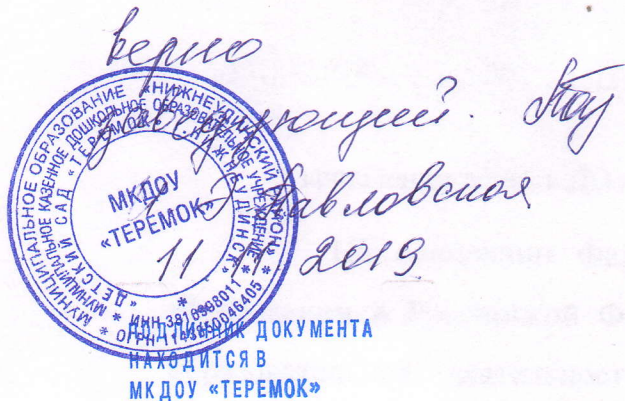 верно
заведующий.
Павловская
11 2019
МУНИЦИПАЛЬНОЕ ОБРАЗОВАНИЕ «НИЖНЕУДИНСКИЙ РАЙОН»
МУНИЦИПАЛЬНОЕ КАЗЕННОЕ ДОШКОЛЬНОЕ ОБРАЗОВАТЕЛЬНОЕ УЧРЕЖДЕНИЕ
«ДЕТСКИЙ САД «ТЕРЕМОК» НИЖНЕУДИНСК»
МКДОУ
«ТЕРЕМОК»
ИНН
ОГРН
ПОДЛИННИК ДОКУМЕНТА
НАХОДИТСЯ В
МКДОУ «ТЕРЕМОК»